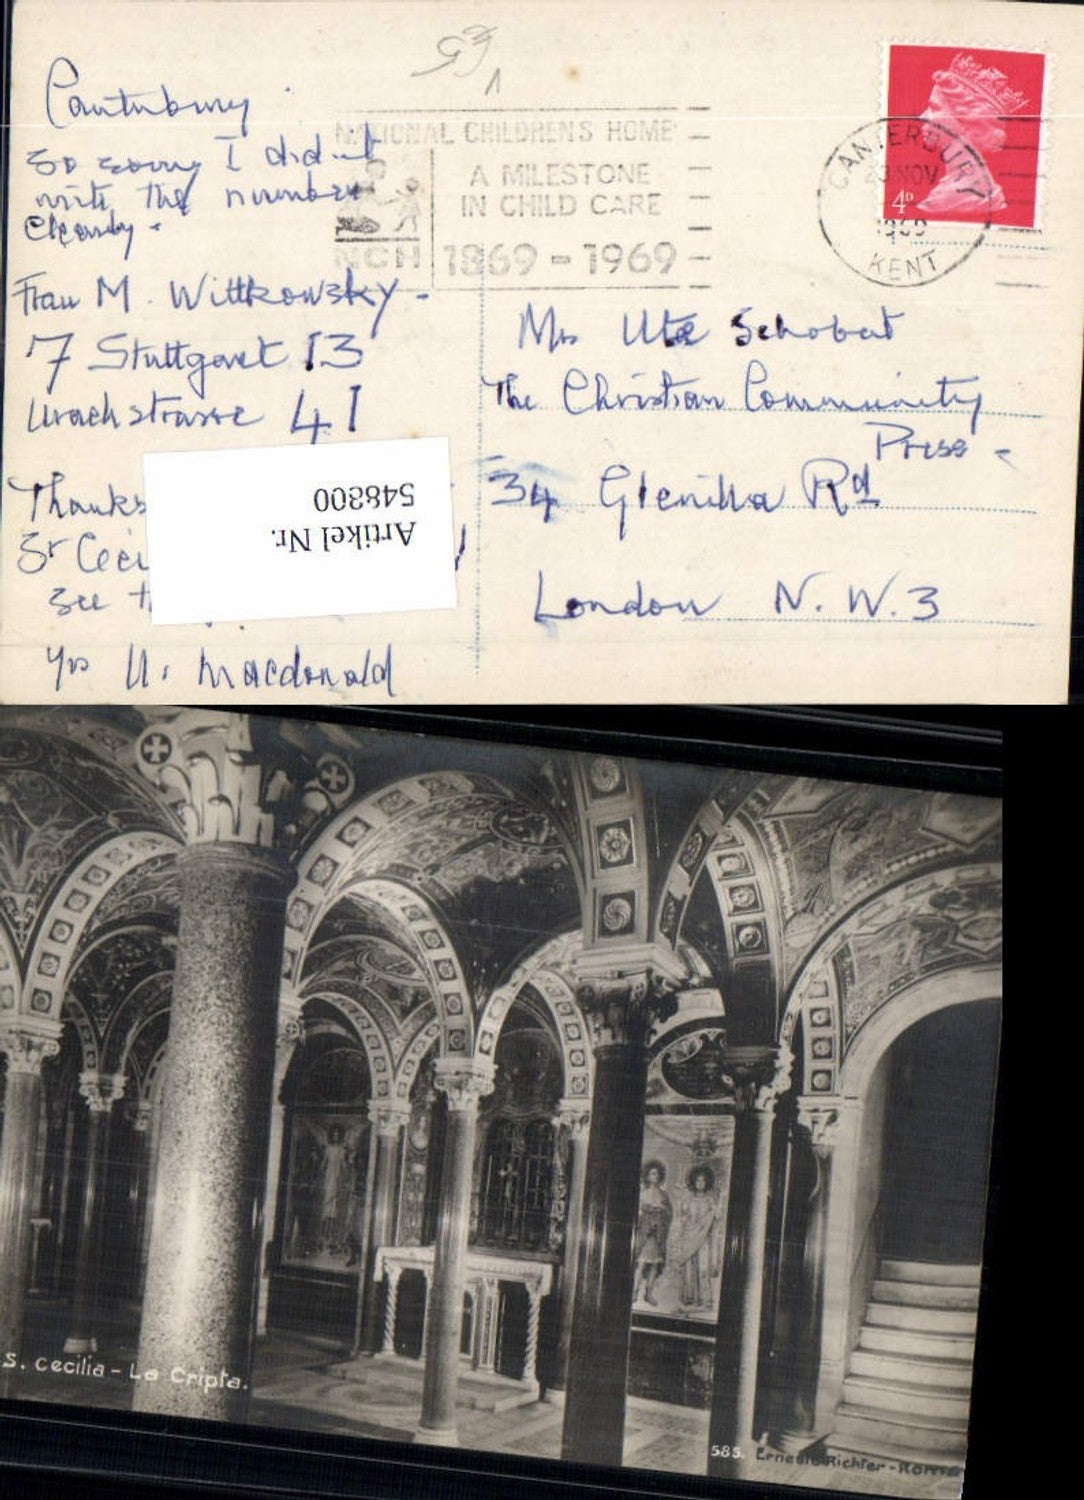 Canterbury
So sorry I did not
write the number
clearly -
Frau M. Wittkowsky -
7 Stuttgart 13
Urachstrasse 41
Thanks
St Ceci
see
Yrs U. Macdonald
NATIONAL CHILDREN'S HOME
A MILESTONE
IN CHILD CARE
NCH 1869-1969
CANTERBURY
NOV
1969
KENT
4ᴰ
Mrs Ute Schobert
The Christian Community
Press -
34 Glenilla Rd
London N.W.3
Artikel Nr.
548800
S. Cecilia - La Cripta.
585. Ernesto Richter - Roma